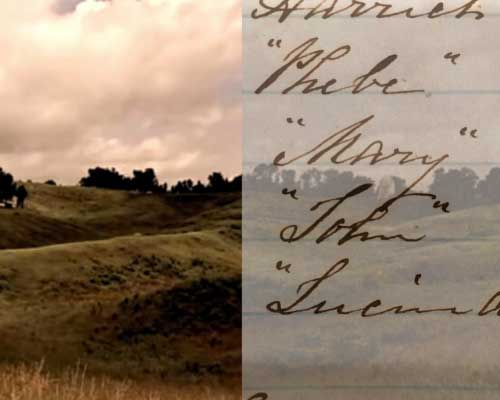 Harriet
"Phebe"
"Mary"
"John"
"Lucinda